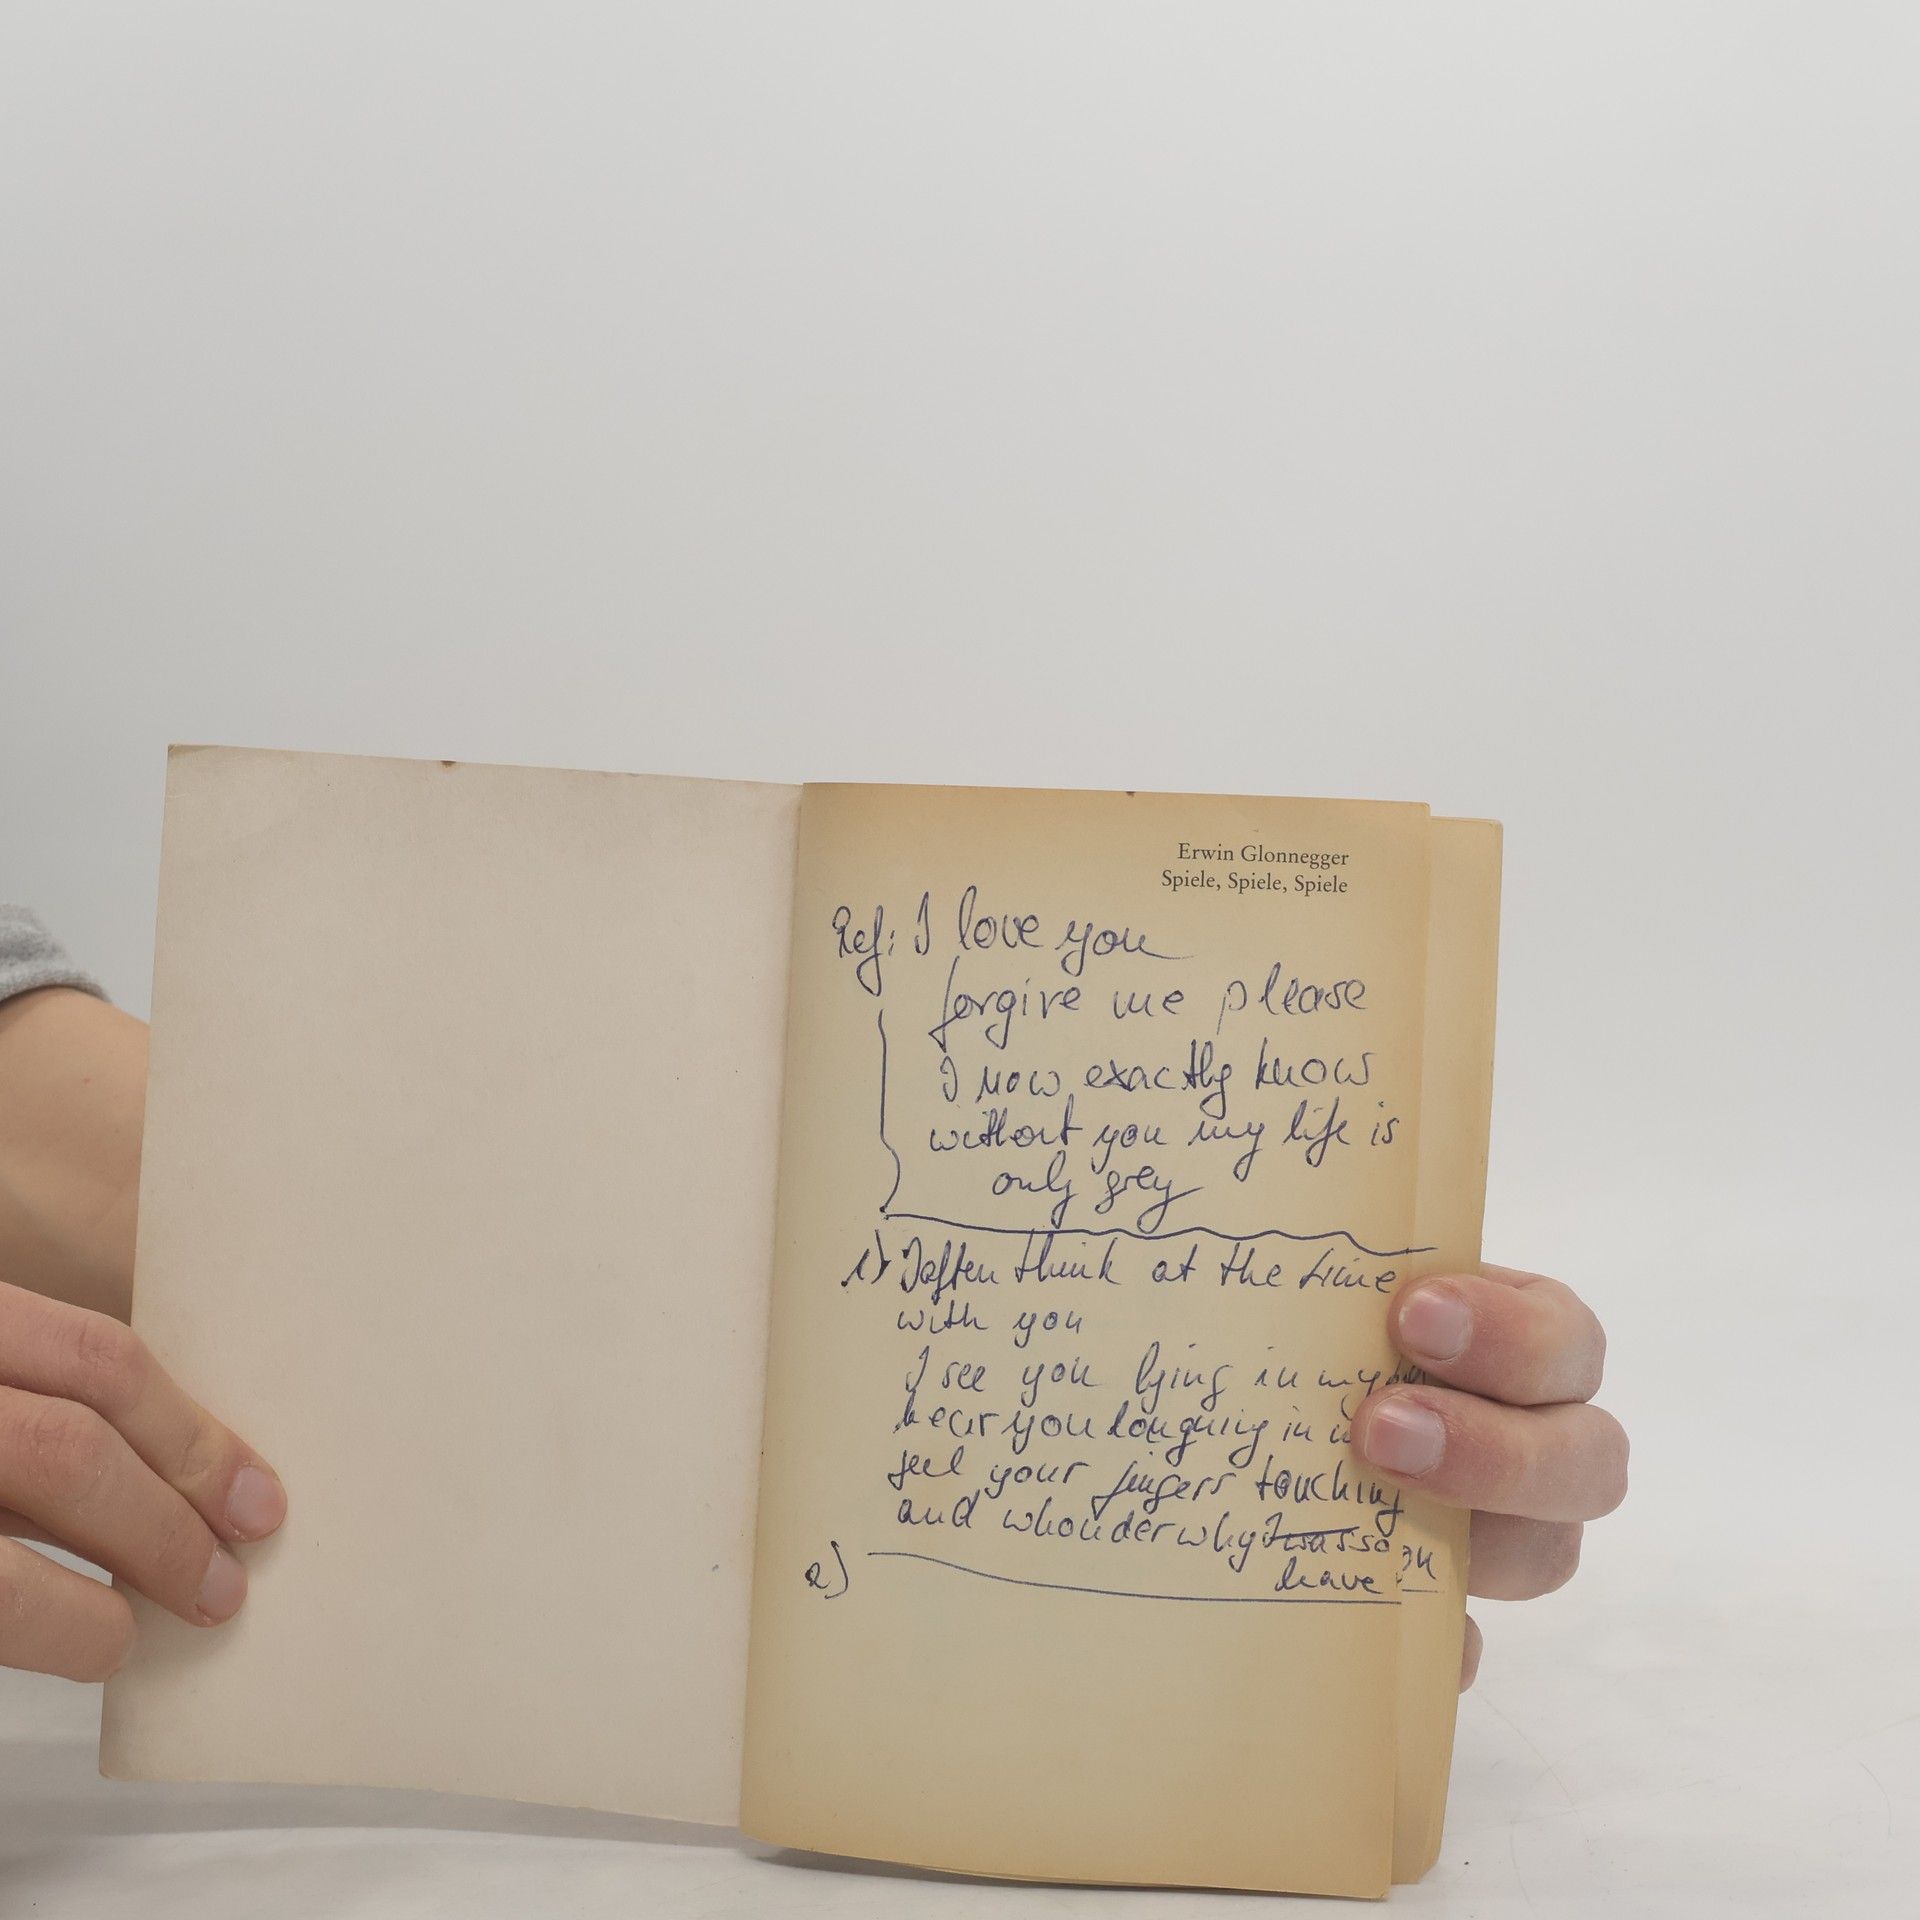 Erwin Glonnegger
Spiele, Spiele, Spiele
Ref: I love you
forgive me please
I now exactly know
without you my life is
only grey
1) I often think at the time
with you
I see you lying in my
hear you longuing in
feel your fingers touching
and whonder why I was so
leave
2)